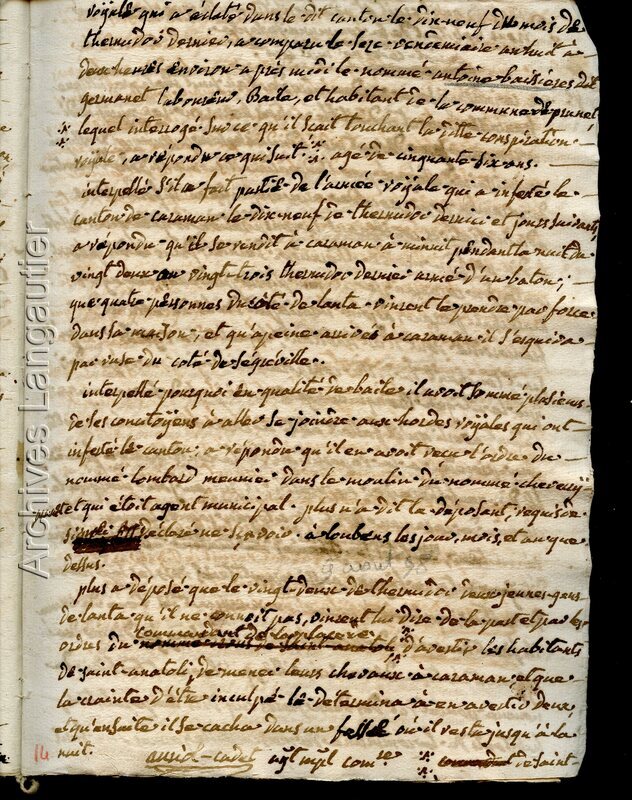 royale qui a éclaté dans le dit canton le dix-neuf du mois de
thermidor dernier, a comparu le seze vendemiaire an huit à
deux heures environ après midi le nommé antoine baissières dit
germanet laboureur, Baile, et habitant de la commune de prunet,
lequel interrogé sur ce qu'il scait touchant la ditte conspiration
royale, a répondu ce qui suit. agé de cinquante dix ans.
interpellé s'il a fait partie de l'armée royale qui a infesté le
canton de caraman le dix-neuf de thermidor dernier et jours suivants
a répondu qu'il se rendit à caraman à minuit pendant la nuit du
vingt deux au vingt-trois thermidor dernier armé d'un baton;
que quatre personnes du coté de lanta vinsent le prendre par force
dans sa maison, et qu'apeine arrivés à caraman il s'esquiva
par ruse du coté de ségréville.
interpellé pourquoi en qualité de baile il avoit sommé plusieurs
de ses concitoyens à aller se joindre aux hordes royales qui ont
infesté le canton, a répondu qu'il en avoit reçu l'ordre du
nommé lombard meunier dans le moulin du nommé
et qui étoit agent municipal. plus n'a dit la déposant, requis de
signer a déclaré ne savoir. à loubens les jour, mois, et an que
dessus.
plus a déposé que le vingt-deux de thermidor deux jeunes-gens
de lanta qu'il ne connoit pas, vinsent lui dire de la part et par les
commandant de la place
ordres du d'avertir les habitants
de saint-anatoli de mener leurs chevaux à caraman et que
la crainte d'être inculpé le determina à en avertir deux
et qu'ensuite il se cacha dans un fossé où il resta jusqu'à la
nuit.
auriol-cadet com.re de saint-
14
Archives Langautier